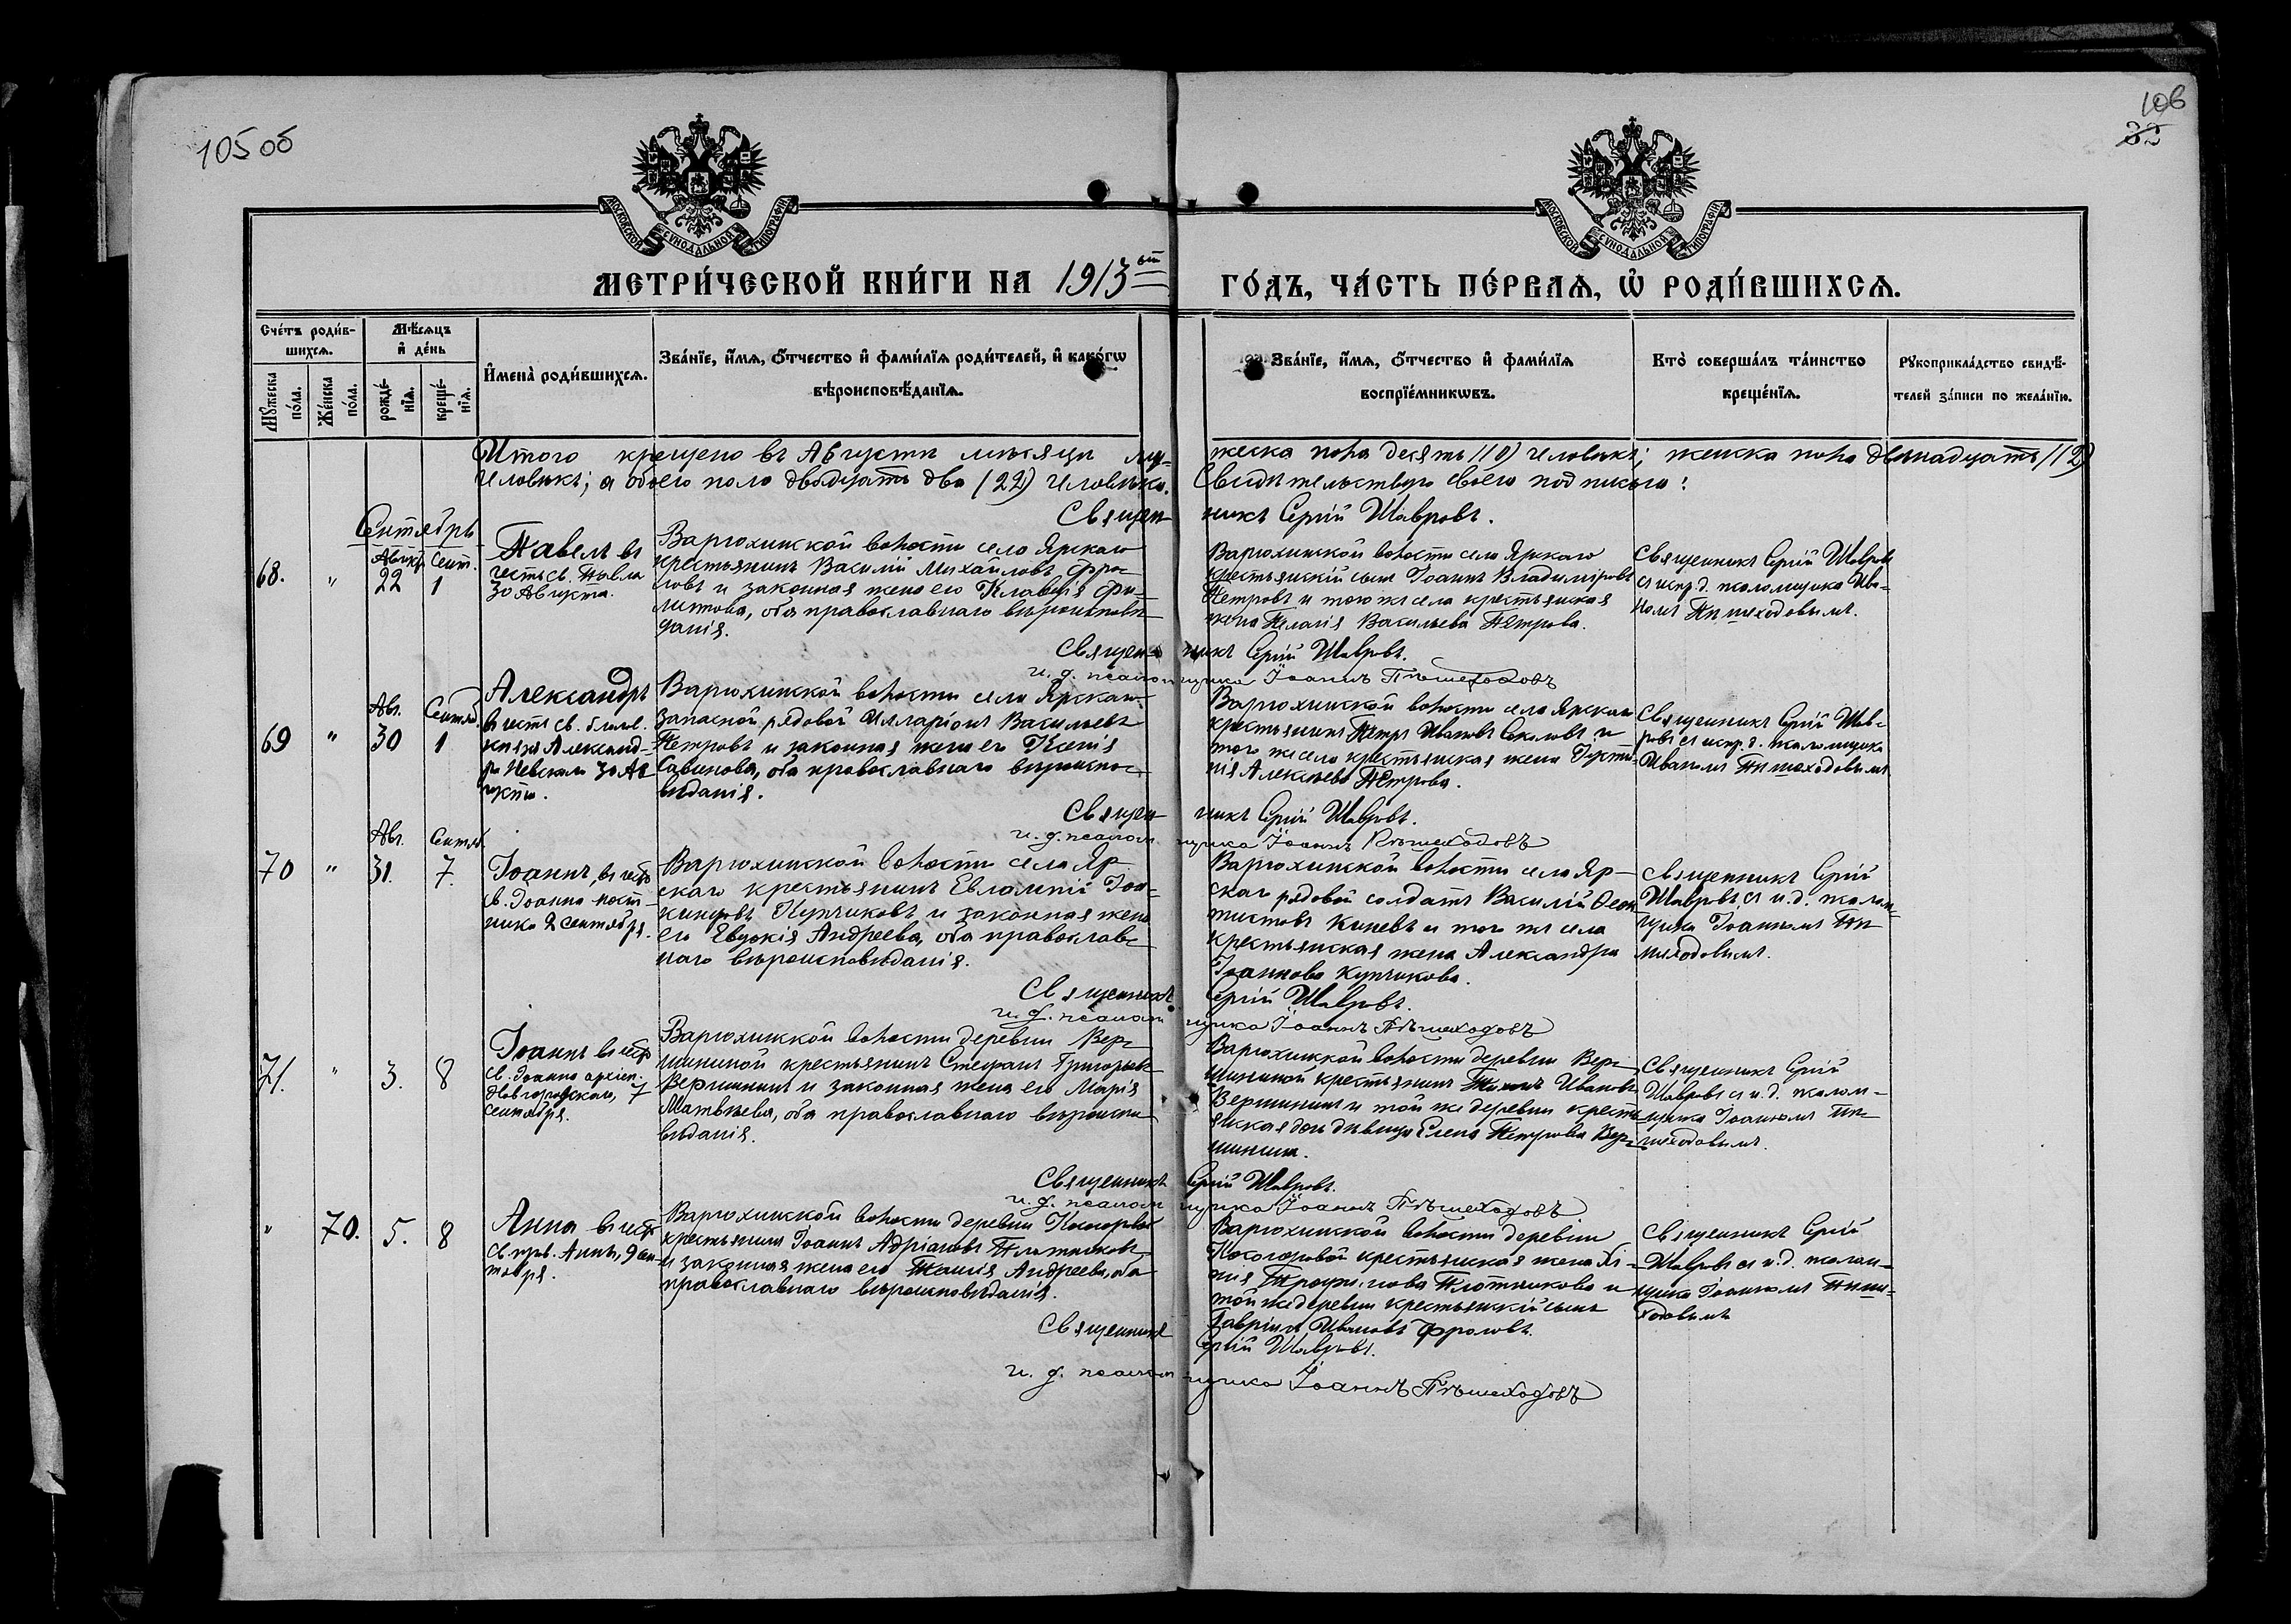 105 об
106
32
МОСКОВСКОЙ СѴНОДАЛЬНОЙ ТИПОГРАФІИ
МОСКОВСКОЙ СѴНОДАЛЬНОЙ ТИПОГРАФІИ
МЕТРИ́ЧЕСКОЙ КНИ́ГИ НА 1913ый ГО́ДЪ, ЧА́СТЬ ПЕ́РВАѦ, Ѡ҆ РОДИ́ВШИХСѦ.
Сче́тъ роди́в-
шихсѧ.
Мѣ́сѧцъ
и҆ де́нь
Мꙋ́жеска
по́ла.
Же́нска
по́ла.
рожде́-
нїѧ.
креще́-
нїѧ.
И҆мена̀ роди́вшихсѧ.
Зва́нїе, и҆́мѧ, ѻ҆́тчество и҆ фами́лїѧ роди́телей, и҆ како́гѡ
вѣроисповѣ́данїѧ.
Зва́нїе, и҆́мѧ, ѻ҆́тчество и҆ фами́лїѧ
воспрїе́мникѡвъ.
Кто̀ соверша́лъ та́инство
креще́нїѧ.
Рꙋкоприкла́дство свидѣ́-
телей за́писи по жела́нїю.
Итого крещено въ Августѣ мѣсяцѣ муж-
жеска пола десять (10) человѣкъ; женска пола двѣнадцать (12)
человѣкъ; а обоего пола двадцать два (22) человѣка.
Свидѣтельствую своею подписью:
Священникъ Сергій Шавровъ.
Сентябрь
68.
"
Авгус.
22
Сент.
1
Павелъ въ
честь св. Павла
30 Августа.
Варюхинской волости села Ярскаго
крестьянинъ Василій Михаиловъ Фро-
ловъ и законная жена его Клавдія Фи-
липова, оба православнаго вѣроисповѣ-
данія.
Варюхинской волости села Ярскаго
крестьянскій сынъ Іоаннъ Владиміровъ
Петровъ и того же села крестьянская
жена Пелагія Васильева Петрова.
Священникъ Сергій Шавровъ
съ испр. д. псаломщика Ива-
номъ Пѣшеходовымъ.
Священникъ Сергій Шавровъ.
и. д. псаломщика Іоаннъ Пѣшеходовъ
69
"
Авг.
30
Сентяб.
1
Александръ
въ честь св. благов.
князя Александ-
ра Невскаго 30 Ав-
густа.
Варюхинской волости села Ярскаго
запасной рядовой Илларіонъ Васильевъ
Петровъ и законная жена его Ксенія
Савинова, оба православнаго вѣроиспо-
вѣданія.
Варюхинской волости села Ярскаго
крестьянинъ Петръ Ивановъ Соколовъ и
того же села крестьянская жена Іусти-
нія Алексѣева Петрова.
Священникъ Сергій Шав-
ровъ съ испр. д. псаломщика
Иваномъ Пѣшеходовымъ
Священникъ Сергій Шавровъ.
и. д. псаломщика Іоаннъ Пѣшеходовъ
70
"
Авг.
31.
Сентяб.
7.
Іоаннъ, въ честь
св. Іоанна пост-
ника 2 сентября.
Варюхинской волости села Яр-
скаго крестьянинъ Евлампій Іоа-
кимовъ Купчиковъ и законная жена
его Евдокія Андреева, оба православ-
наго вѣроисповѣданія.
Варюхинской волости села Яр-
скаго рядовой солдатъ Василій Феок-
тистовъ Киневъ и того же села
крестьянская жена Александра
Іоаннова Купчикова.
Священникъ Сергій
Шавровъ, съ и. д. псалом-
щика Іоанномъ Пѣ-
шеходовымъ.
Священникъ Сергій Шавровъ.
и. д. псаломщика Іоаннъ Пѣшеходовъ
71.
"
3.
8
Іоаннъ въ честь
св. Іоанна архіеп.
Новгородскаго, 7
сентября.
Варюхинской волости деревни Вер-
шининой крестьянинъ Стефанъ Григорьевъ
Вершининъ и законная жена его Марія
Матвѣева, оба православнаго вѣроиспо-
вѣданія.
Варюхинской волости деревни Вер-
шининой крестьянинъ Тихонъ Ивановъ
Вершининъ и той же деревни кресть-
янская дочь дѣвица Елена Петрова Вер-
шинина.
Священникъ Сергій
Шавровъ съ и. д. псалом-
щика Іоанномъ Пѣ-
шеходовымъ.
Священникъ Сергій Шавровъ.
и. д. псаломщика Іоаннъ Пѣшеходовъ
"
70.
5.
8
Анна въ честь
св. прав. Анны, 9 сен-
тября.
Варюхинской волости деревни Косогоровой
крестьянинъ Іоаннъ Адріановъ Плотниковъ
и законная жена его Таисія Андреева, оба
православнаго вѣроисповѣданія.
Варюхинской волости деревни
Косогоровой крестьянская жена
Трофимова Плотникова и
той же деревни крестьянскій сынъ
Гавріилъ Ивановъ Фроловъ.
Священникъ Сергій
Шавровъ съ и. д. псалом-
щика Іоанномъ Пѣше-
ходовымъ
Священникъ Сергій Шавровъ.
и. д. псаломщика Іоаннъ Пѣшеходовъ